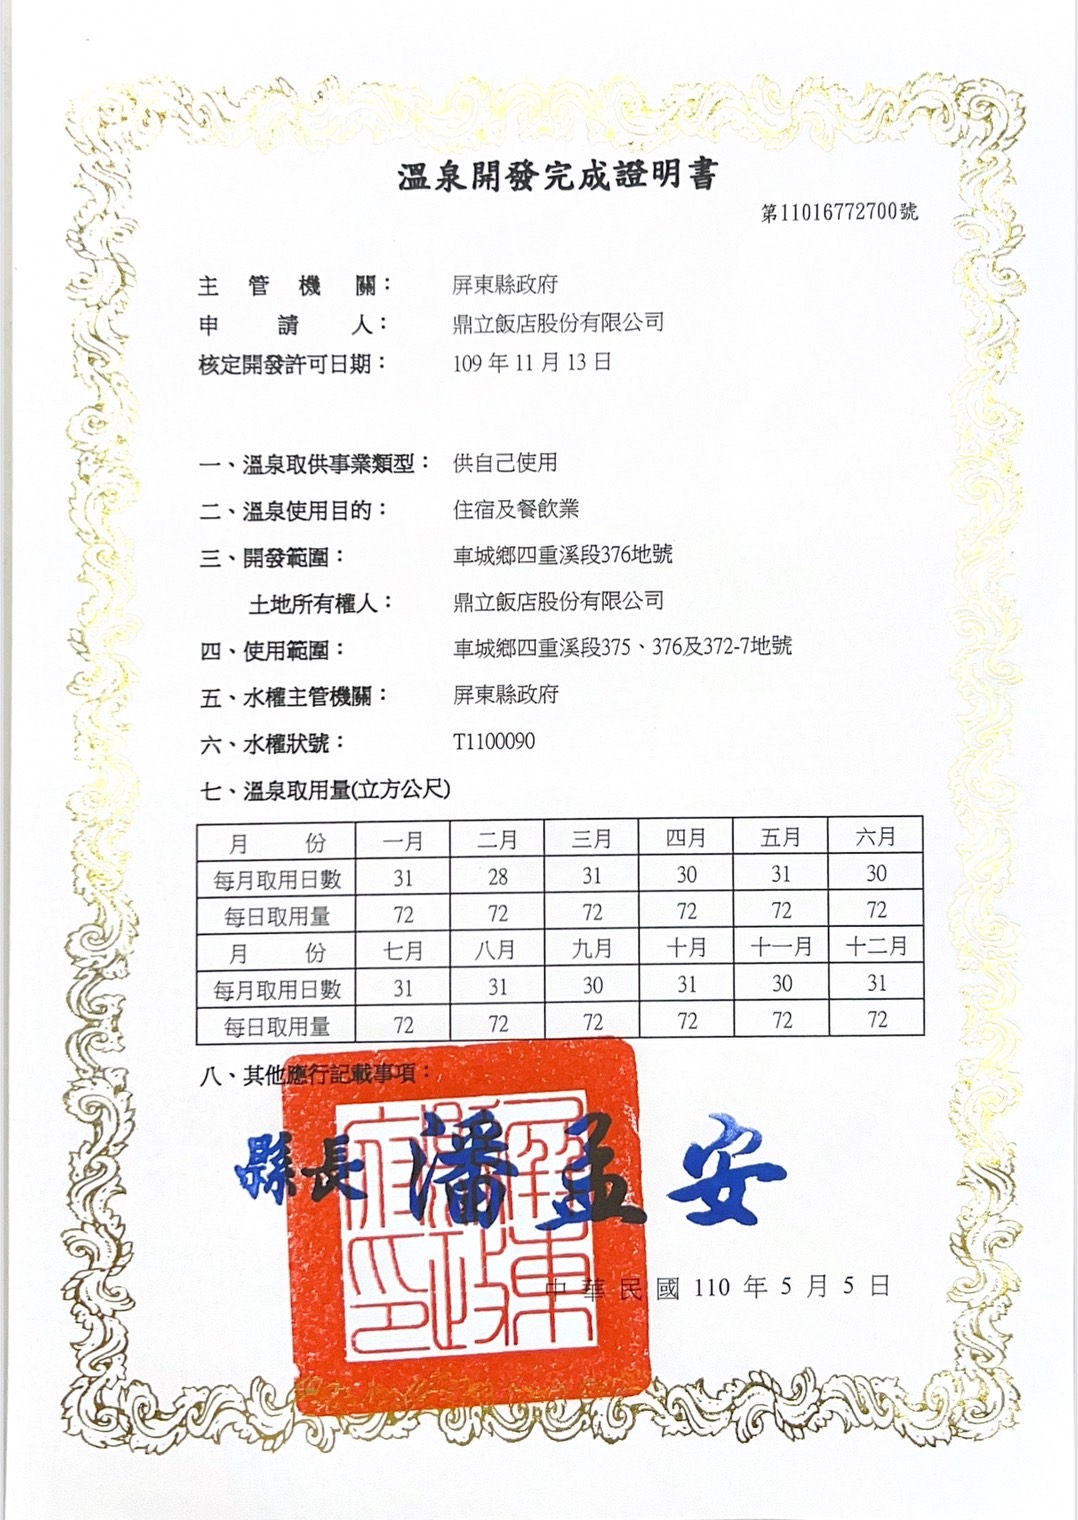 溫泉開發完成證明書
第11016772700號
主管機關： 屏東縣政府
申請人： 鼎立飯店股份有限公司
核定開發許可日期： 109 年 11 月 13 日
一、溫泉取供事業類型： 供自己使用
二、溫泉使用目的： 住宿及餐飲業
三、開發範圍： 車城鄉四重溪段376地號
土地所有權人： 鼎立飯店股份有限公司
四、使用範圍： 車城鄉四重溪段375、376及372-7地號
五、水權主管機關： 屏東縣政府
六、水權狀號： T1100090
七、溫泉取用量(立方公尺)
月份 一月 二月 三月 四月 五月 六月
每月取用日數 31 28 31 30 31 30
每日取用量 72 72 72 72 72 72
月份 七月 八月 九月 十月 十一月 十二月
每月取用日數 31 31 30 31 30 31
每日取用量 72 72 72 72 72 72
八、其他應行記載事項：
縣長 潘孟安
屏東縣政府印
中華民國 110 年 5 月 5 日